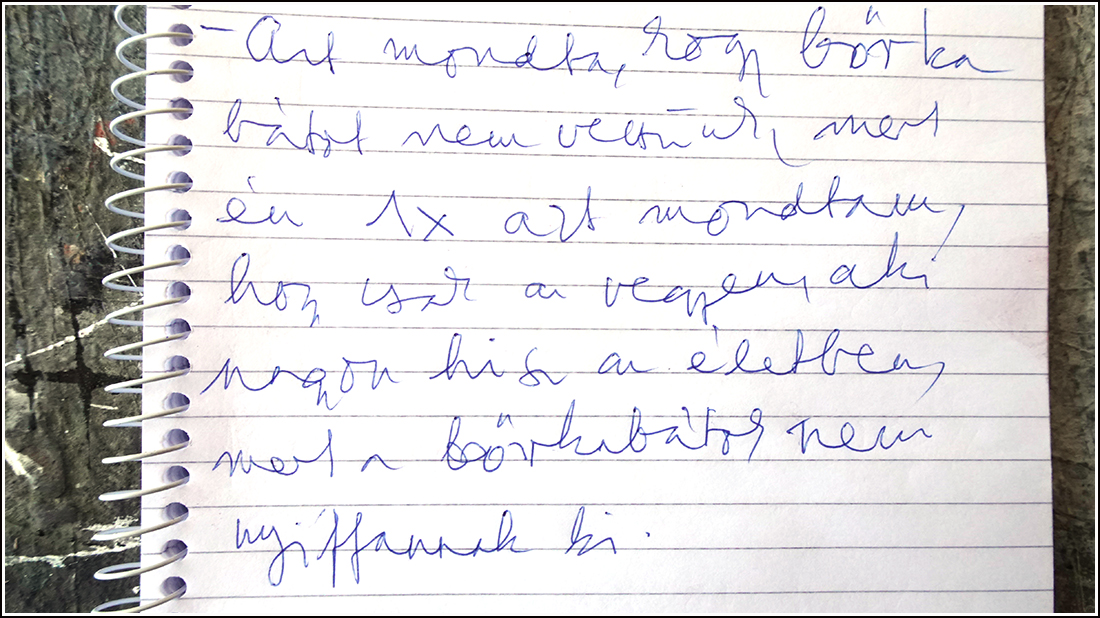 - Azt mondta, hogy bőrka
bátot nem veszünk, mert
én 1x azt mondtam,
hogy csak az vegyen, aki
nagyon hisz az életben,
mert a bőrkabátok nem
nyiffannak ki.